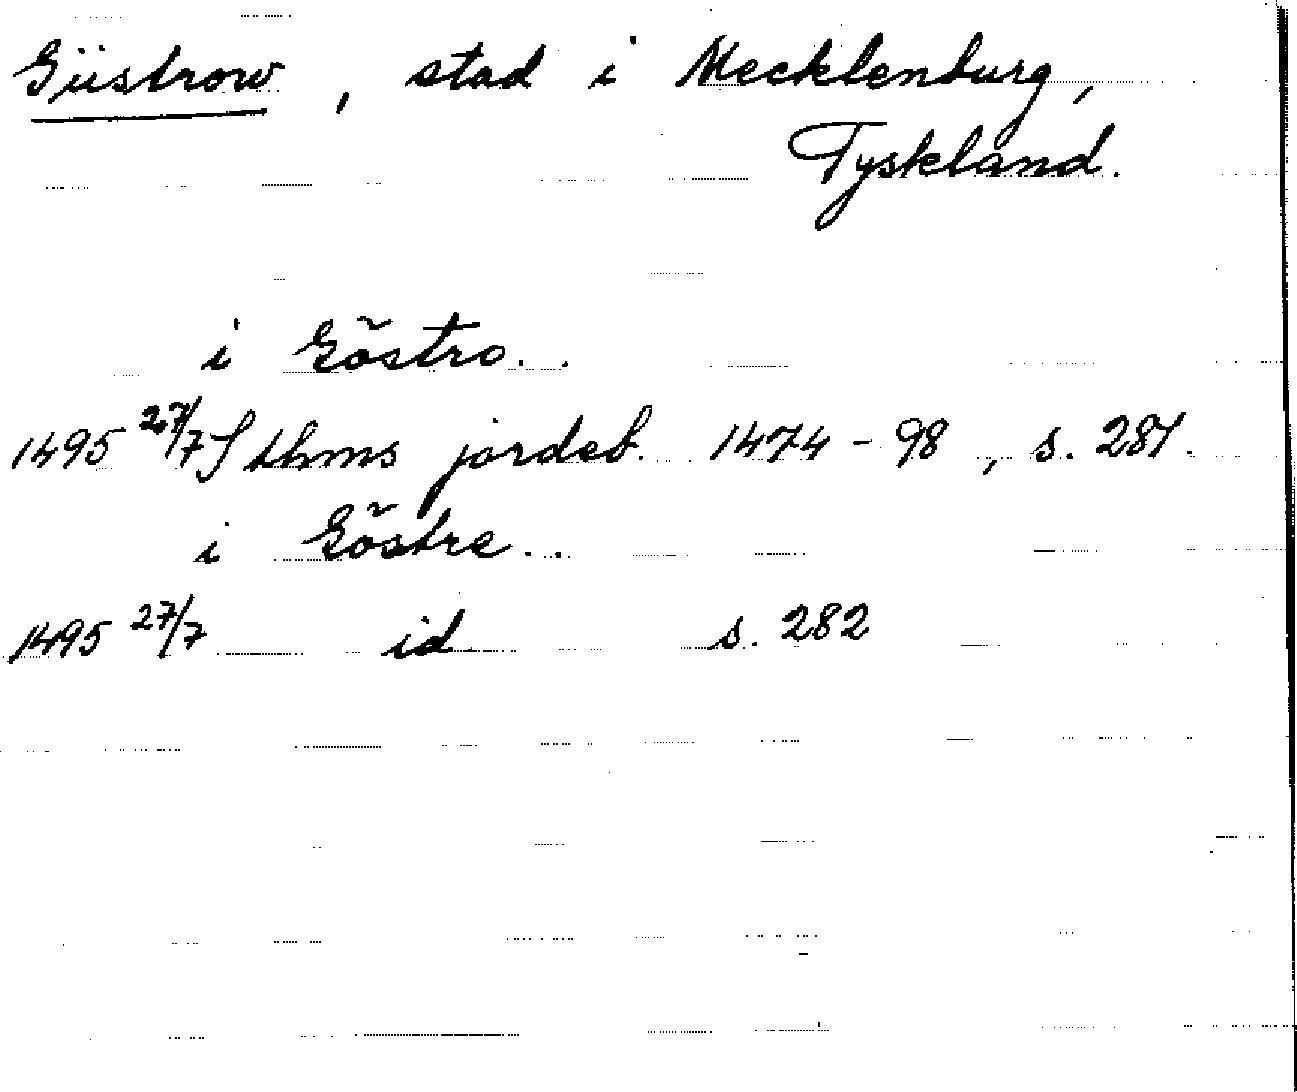 Güstrow, stad i Mecklenburg,
Tyskland.
i Göstro..
1495 27/7 Sthms jordeb. 1474-98, s. 281.
i Göstre..
1495 27/7 id s. 282